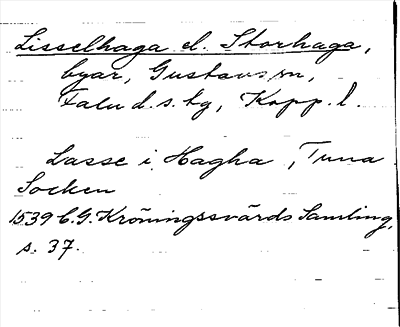 Lisselhaga el. Storhaga,
byar, Gustavs sn,
Falu d.s. tg, Kopp. l.
Lasse i Hagha, Tuna
Socken
1539 C.G. Kröningssvärds Samling,
s. 37.